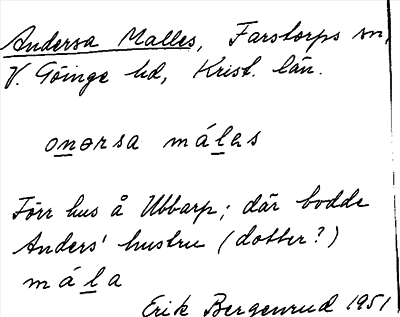 Andersa Malles, Farstorps sn,
V. Göinge hd, Krist. län.
onərsa málas
Förr hus å Ubbarp; där bodde
Anders' hustru (dotter?)
mála
Erik Bergenrud 1951